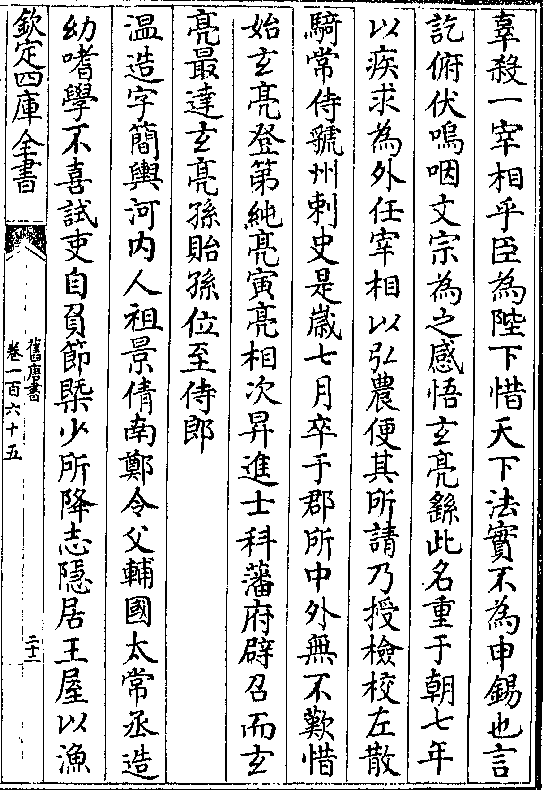 辜殺一宰相乎臣為陛下惜天下法實不為申錫也言
訖俯伏嗚咽文宗為之感悟玄亮繇此名重于朝七年
以疾求為外任宰相以弘農便其所請乃授檢校左散
騎常侍虢州刺史是歲七月卒于郡所中外無不歎惜
始玄亮登第純亮寅亮相次昇進士科藩府辟召而玄
亮最達玄亮孫貽孫位至侍郎
温造字簡輿河内人祖景倩南鄭令父輔國太常丞造
幼嗜學不喜試吏自負節槩少所降志隱居王屋以漁
欽定四庫全書
舊唐書
卷一百六十五
二十二